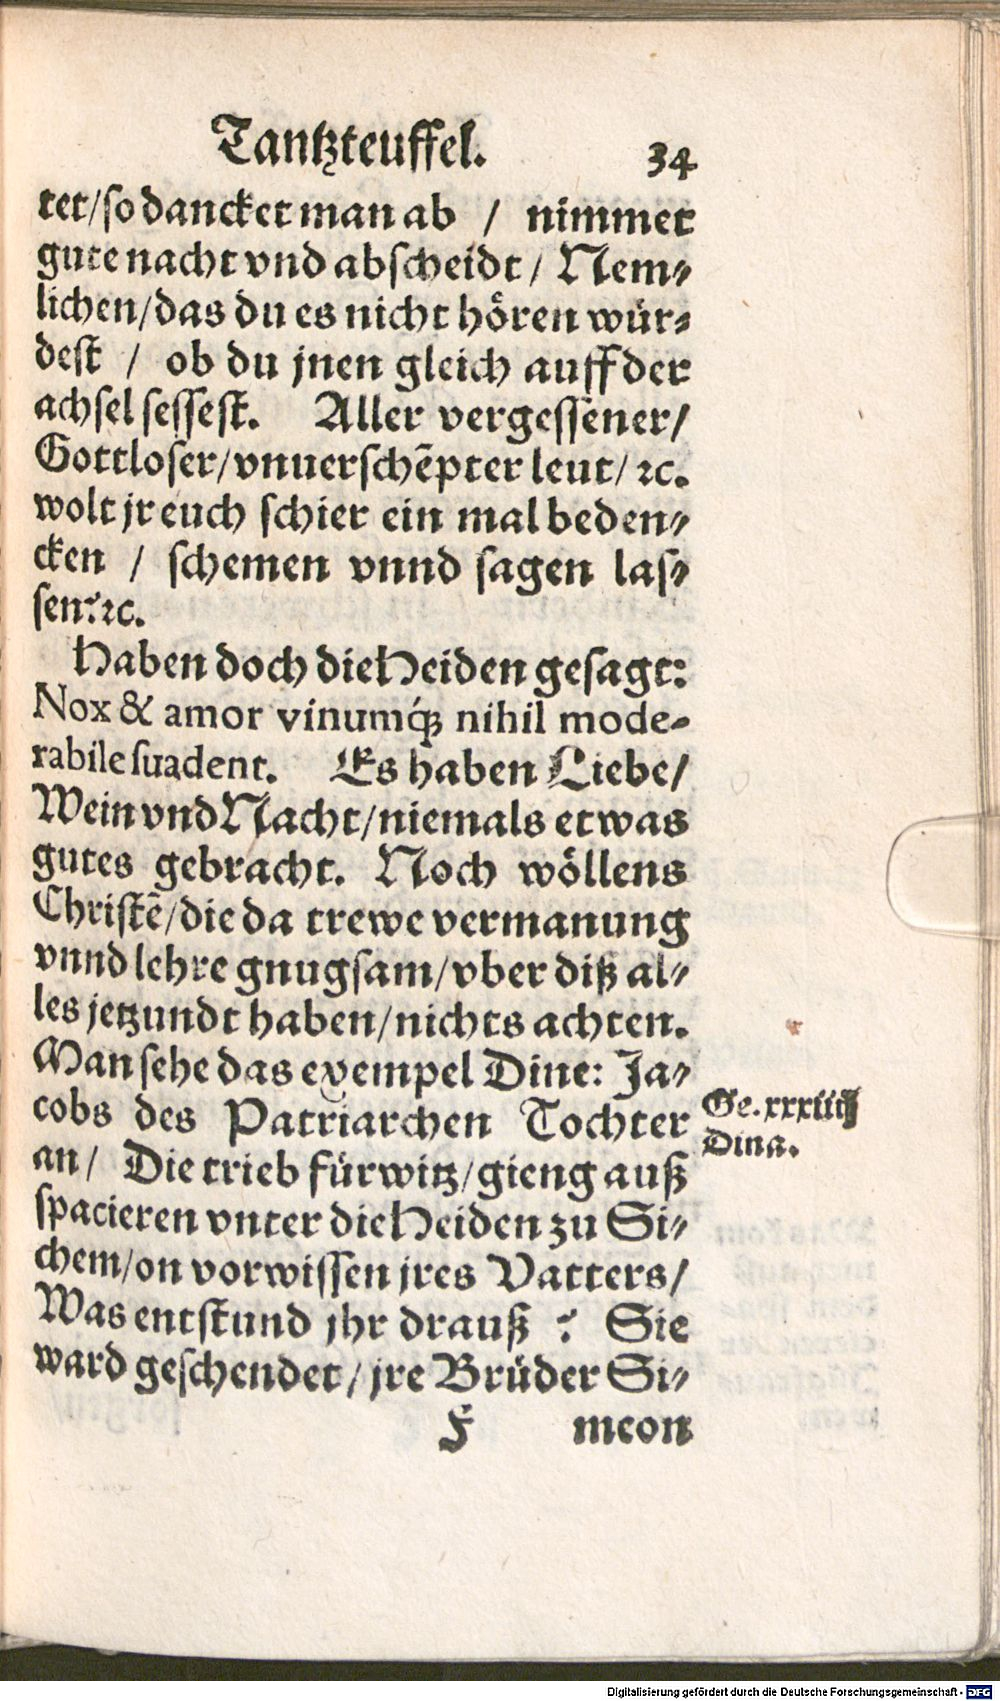 Tantzteuffel. 34
tet/so dancket man ab / nimmet
gute nacht vnd abscheidt / Nem⸗
lichen/das du es nicht hören wür⸗
dest / ob du jnen gleich auff der
achsel sessest. Aller vergessener/
Gottloser/vnuerschẽpter leut/ ꝛc.
wolt jr euch schier ein mal beden⸗
cken / schemen vnnd sagen las⸗
sen?ꝛc.
Haben doch die Heiden gesagt:
Nox & amor vinumq́ꝫ nihil mode-
rabile suadent. Es haben Liebe/
Wein vnd Nacht/niemals etwas
gutes gebracht. Noch wöllens
Christẽ/die da trewe vermanung
vnnd lehre gnugsam/vber diß al⸗
les jetzundt haben/nichts achten.
Man sehe das exempel Dine: Ja⸗
cobs des Patriarchen Tochter
an/ Die trieb fürwitz/gieng auß
spacieren vnter die Heiden zu Si⸗
chem/on vorwissen jres Vatters/
Was entstund jhr drauß ? Sie
ward geschendet/jre Brüder Si⸗
F meon
Ge.xxxiiij
Dina.
Digitalisierung gefördert durch die Deutsche Forschungsgemeinschaft - DFG